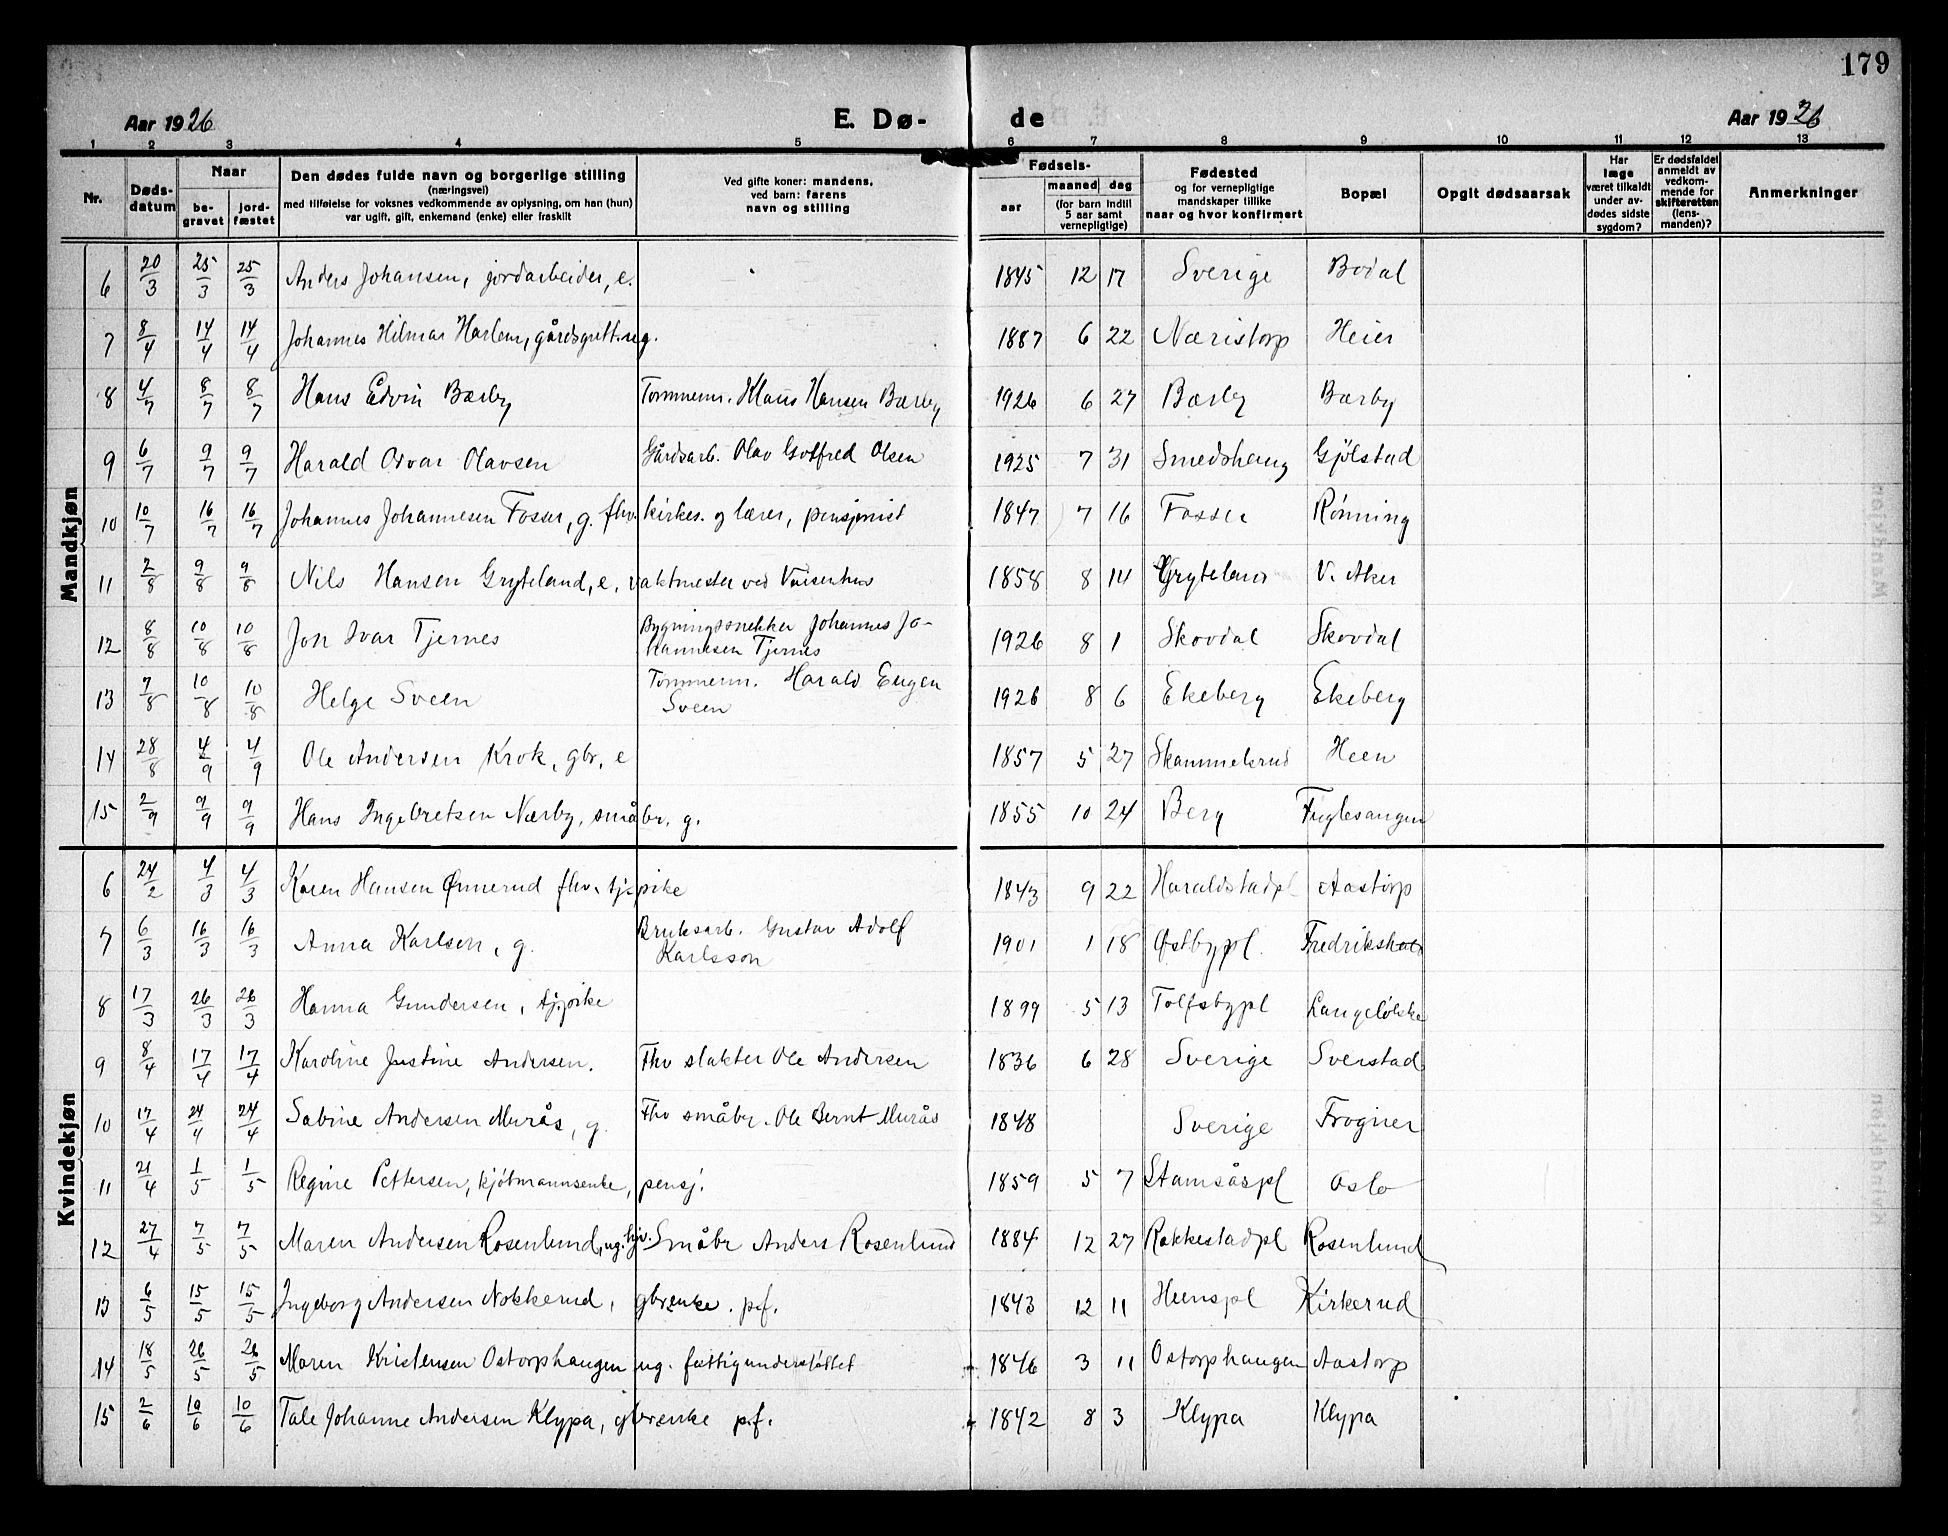 179
Aar 1926 E. Dø- de Aar 1926
1 2 3 4 5 6 7 8 9 10 11 12 13
Nr. Døds-datum Naar be-gravet jord-fæstet Den dødes fulde navn og borgerlige stilling (næringsvei) med tilføielse for voksnes vedkommende av oplysning, om han (hun) var ugift, gift, enkemand (enke) eller fraskilt Ved gifte koner: mandens, ved barn: farens navn og stilling Fødsels- aar maaned dag (for barn indtil 5 aar samt vernepligtige) Fødested og for vernepligtige mandskaper tillike naar og hvor konfirmert Bopæl Opgit dødsaarsak Har læge været tilkaldt under av-dødes sidste sygdom? Er dødsfaldet anmeldt av vedkom-mende for skifteretten (lens-manden)? Anmerkninger
Mandkjøn
6 20/3 25/3 25/3 Anders Johansen, jordarbeider, e. 1845 12 17 Sverige Bodal
7 8/4 14/4 14/4 Johannes Hilmar Harlem, gårdsgutt. ug. 1887 6 22 Næristorp Heier
8 4/7 8/7 8/7 Hans Edvin Bærby Tømmerm. Klaus Hansen Bærby 1926 6 27 Bærby Bærby
9 6/7 9/7 9/7 Harald Osvar Olavsen Gårdsarb. Olav Gotfred Olsen 1925 7 31 Smedshaug Gjølstad
10 10/7 16/7 16/7 Johannes Johannesen Fosser, g. fhv. kirkes. og lærer, pensjonist 1847 7 16 Fosser Rønning
11 2/8 9/8 9/8 Nils Hansen Gryteland, e. vaktmester ved Vaisenhus 1858 8 14 Gryteland V. Aker
12 8/8 10/8 10/8 Jon Ivar Tjernes Bygningssnekker Johannes Jo-
hannesen Tjernes 1926 8 1 Skovdal Skovdal
13 7/8 10/8 10/8 Helge Sveen Tømmerm. Harald Eugen
Sveen 1926 8 6 Ekeberg Ekeberg
14 28/8 4/9 4/9 Ole Andersen Krok, gbr, e 1857 5 27 Skammelsrud Heen
15 2/9 9/9 9/9 Hans Ingebretsen Nærby, småbr, g. 1855 10 24 Berg Fuglesangen
Kvindekjøn
6 24/2 4/3 4/3 Karen Hansen Ønnerud fhv. tj.pike 1843 9 22 Haraldstadpl Aastorp
7 6/3 16/3 16/3 Anna Karlsen, g. Bruksarb. Gustav Adolf
Karlsson 1901 1 18 Østbypl. Fredrikshald
8 17/3 26/3 26/3 Hanna Gundersen, tj.pike 1899 5 13 Tolfsbypl
9 8/4 17/4 17/4 Karoline Justine Andersen. Fhv slakter Ole Andersen 1836 6 28 Sverige Sverstad
10 17/4 24/4 24/4 Sabine Andersen Murås, g. Fhv småbr. Ole Bernt Murås 1848 Sverige Frogner
11 21/4 1/5 1/5 Regine Pettersen, kjøbmannsenke, pensj. 1859 5 7 Stamsåspl Oslo
12 27/4 7/5 7/5 Maren Andersen Rosenlund, ug. hjv. Småbr Anders Rosenlund 1884 12 27 Rakkestadpl Rosenlund
13 6/5 15/5 15/5 Ingeborg Andersen Nokkerud, gbrenke. p.f. 1843 12 11 Heenspl Kirkerud
14 18/5 26/5 26/5 Maren Kristensen Ostorphaugen ug. fattigunderstøttet 1846 3 11 Ostorphaugen Aastorp
15 2/6 10/6 10/6 Tale Johanne Andersen Klypa, gbrenke p.f. 1842 8 3 Klypa Klypa